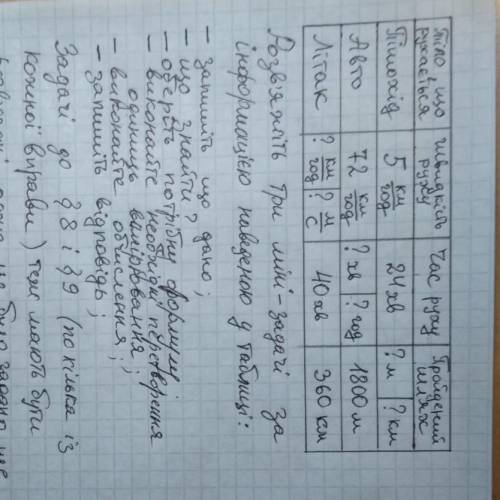 Тіло що рухається | Швидкість руху | Час руху | Пройдений шлях
Пішохід | 5 км/год | 24 хв | ? м | ? км
Авто | 72 км/год | ? хв | ? год | 1800 м
Літак | ? км/год | ? м/с | 40 хв | 360 км
Розв'яжіть три міні-задачі за
інформацією наведеною у таблиці:
– запишіть що дано;
– що знайти?
– оберіть потрібну формулу;
– виконайте необхідні перетворення
одиниць вимірювання;
– виконайте обчислення;
– запишіть відповідь;
Задачі до § 8 і § 9 (по кілька із
кожної вправи) теж мають бути
не було задано ще